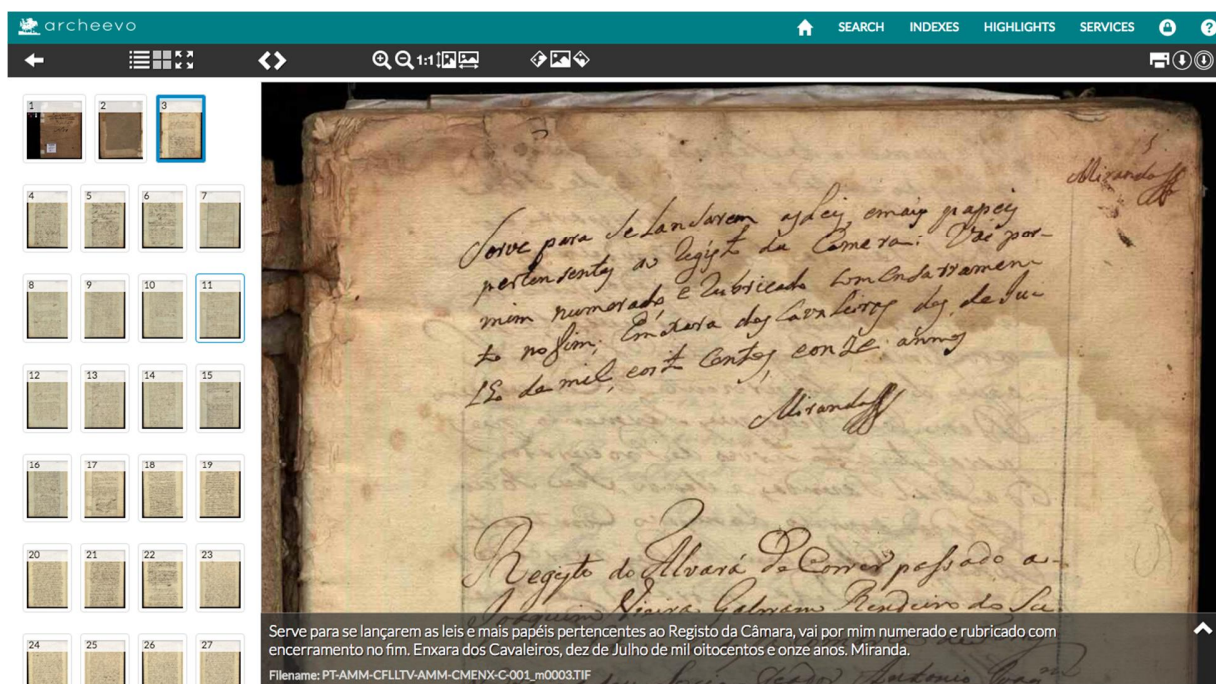 archeevo
SEARCH INDEXES HIGHLIGHTS SERVICES
1:1
1 2 3
4 5 6 7
8 9 10 11
12 13 14 15
16 17 18 19
20 21 22 23
24 25 26 27
Miranda
Serve para se lansarem as leis, e mais papeis
pertensentes ao Regist da Camera: Vai por
mim numerado, e Rubricado com Enserramen
to no fim; Enxara dos Cavaleiros des de Ju
de mil, e oit Centos, e onze annos
Miranda
Registo do Alvará de Correr passado a
Joaquim Vieira Rendeiro do
Serve para se lançarem as leis e mais papéis pertencentes ao Registo da Câmara, vai por mim numerado e rubricado com
encerramento no fim. Enxara dos Cavaleiros, dez de Julho de mil oitocentos e onze anos. Miranda.
Filename: PT-AMM-CFLLTV-AMM-CMENX-C-001_m0003.TIF